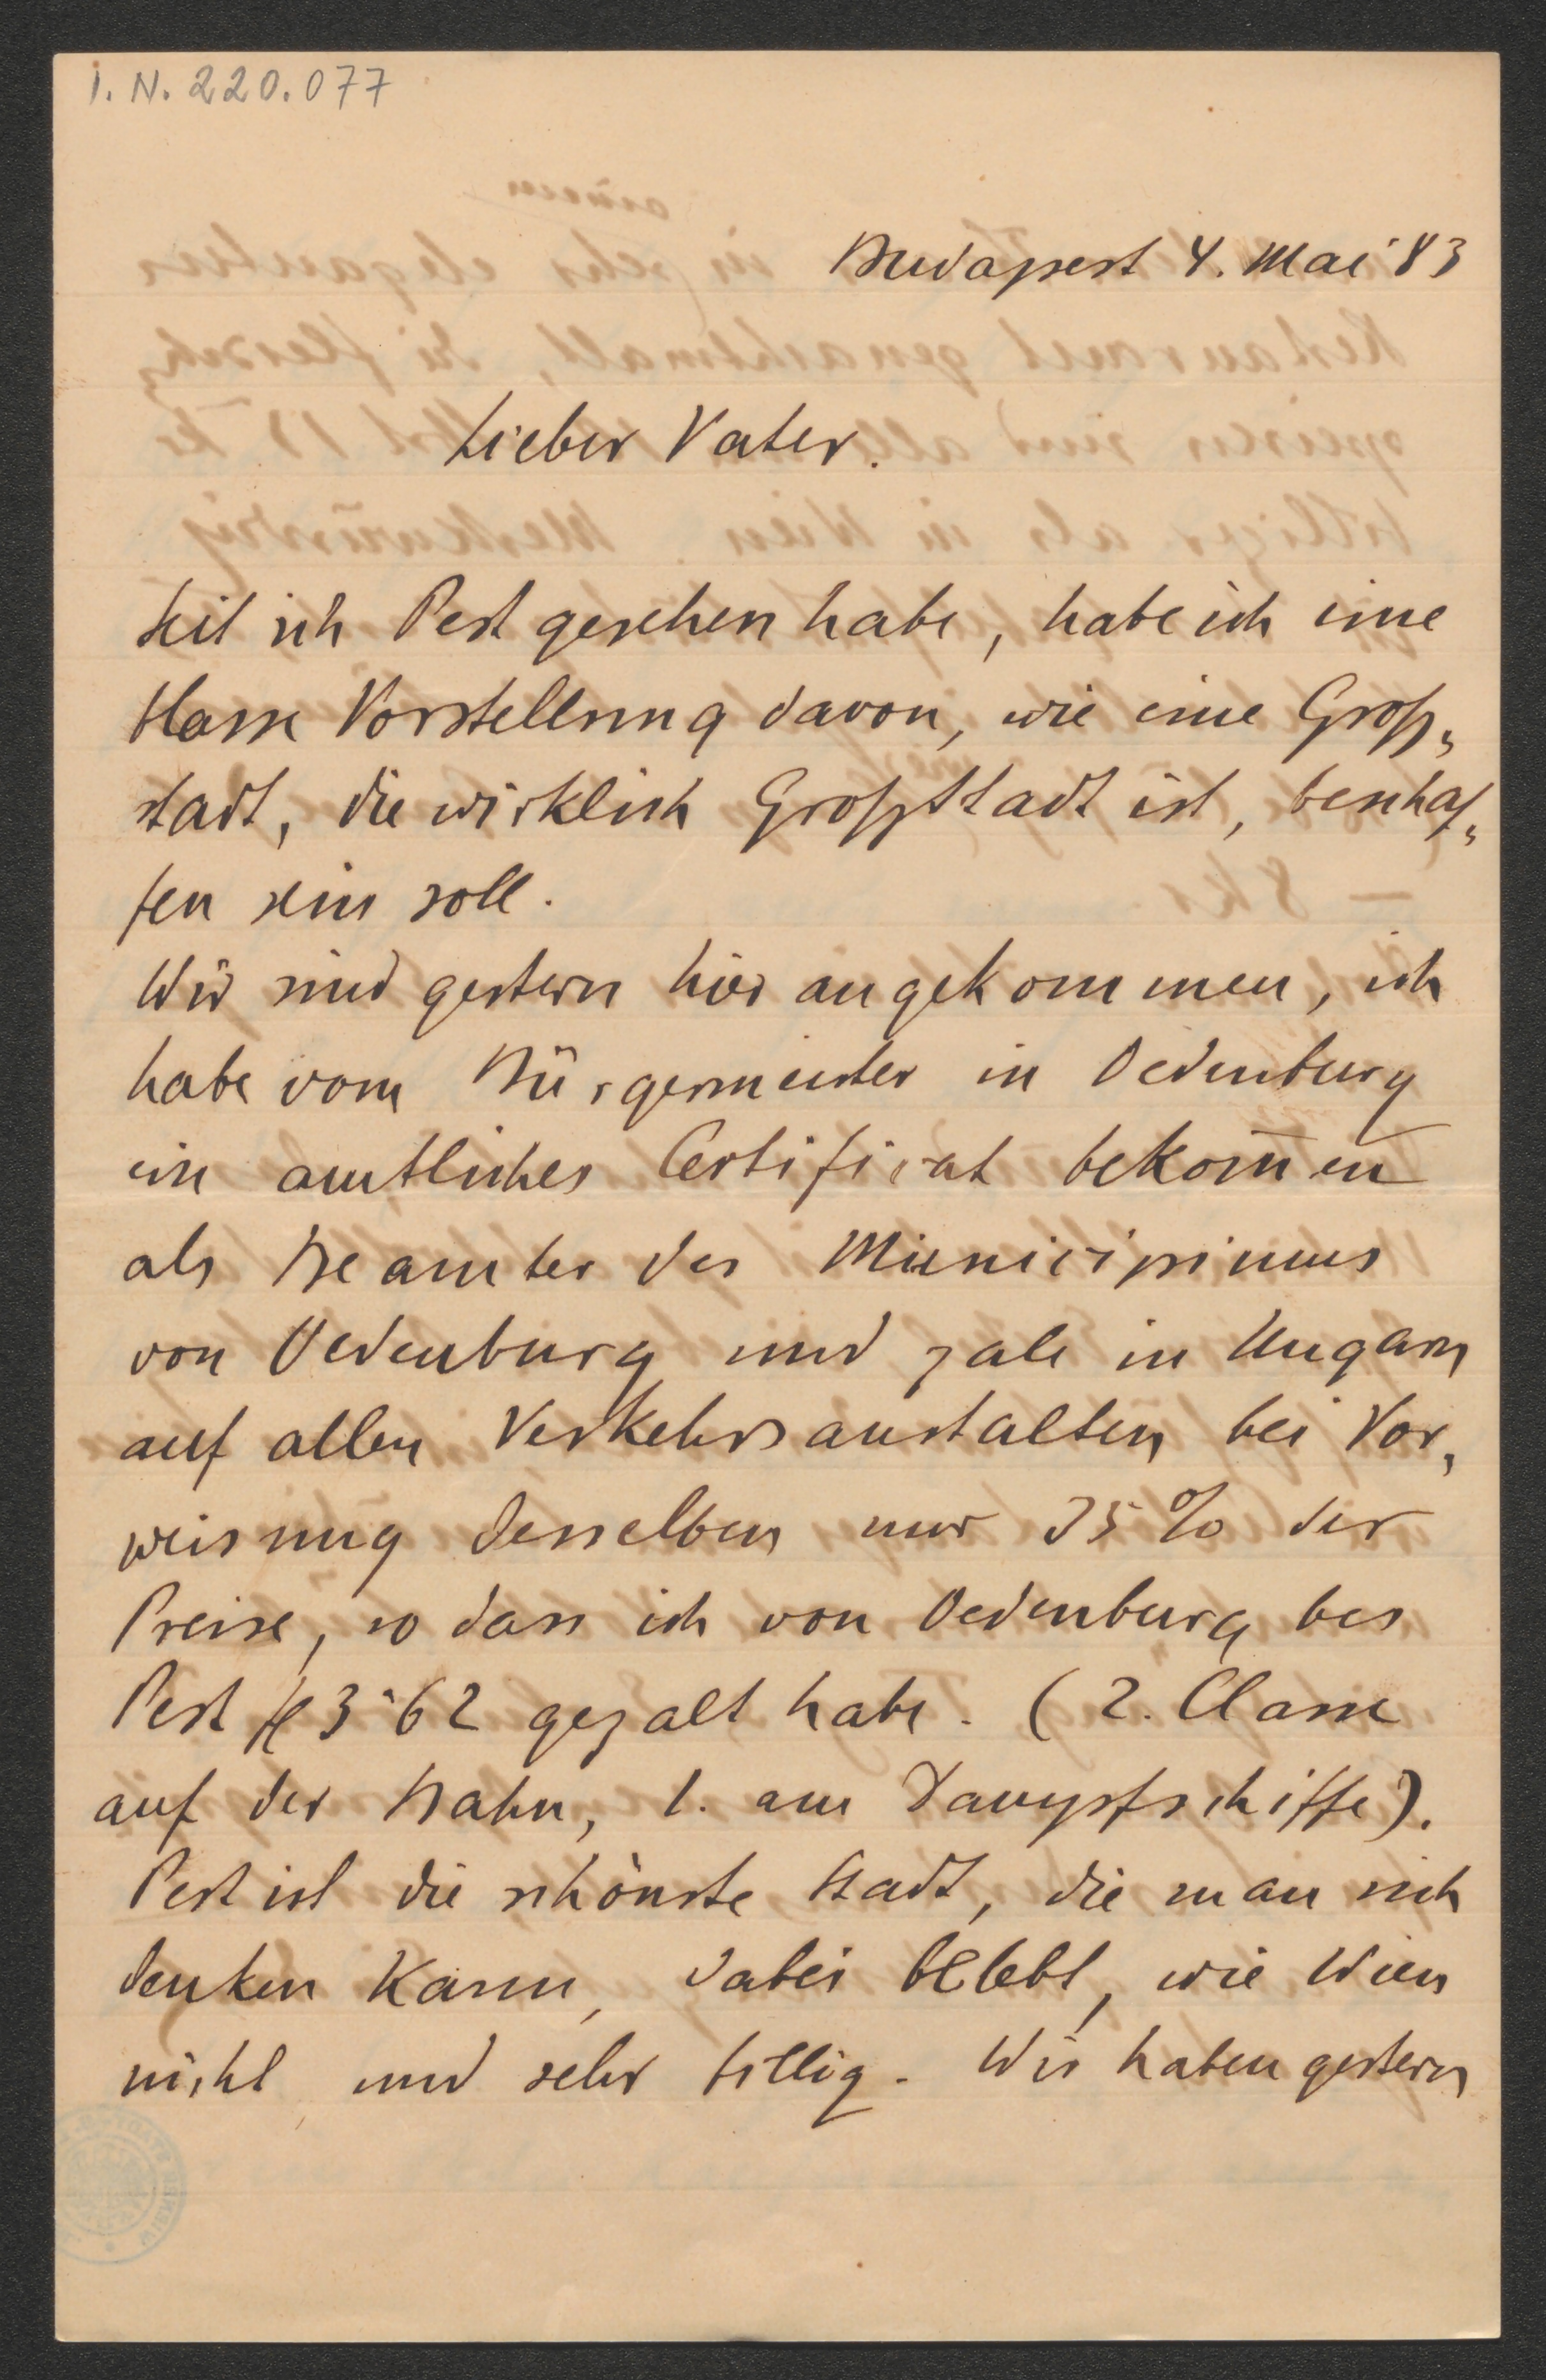 I. N. 220.077
Budapest 4. Mai 83
Lieber Vater.
Seit ich Pest gesehen habe, habe ich eine
klare Vorstellung davon, wie eine Groß„
stadt, die wirklich Großstadt ist, beschaf„
fen sein soll.
Wir sind gestern hier angekommen, ich
habe vom Bürgermeister in Oedenburg
ein amtliches Certificat bekom̅en
als Beamter des Municipiums
von Oedenburg und zale in Ungarn
auf allen Verkehrsanstalten bei Vor„
weisung desselben nur 35% der
Preise, so dass ich von Oedenburg bis
Pest fl 3·62 gezalt habe. (2. Classe
auf der Bahn, 1. am Dampfschiffe).
Pest ist die schönste Stadt, die man sich
denken kann, dabei belebt, wie Wien
nicht und sehr billig. Wir haben gestern